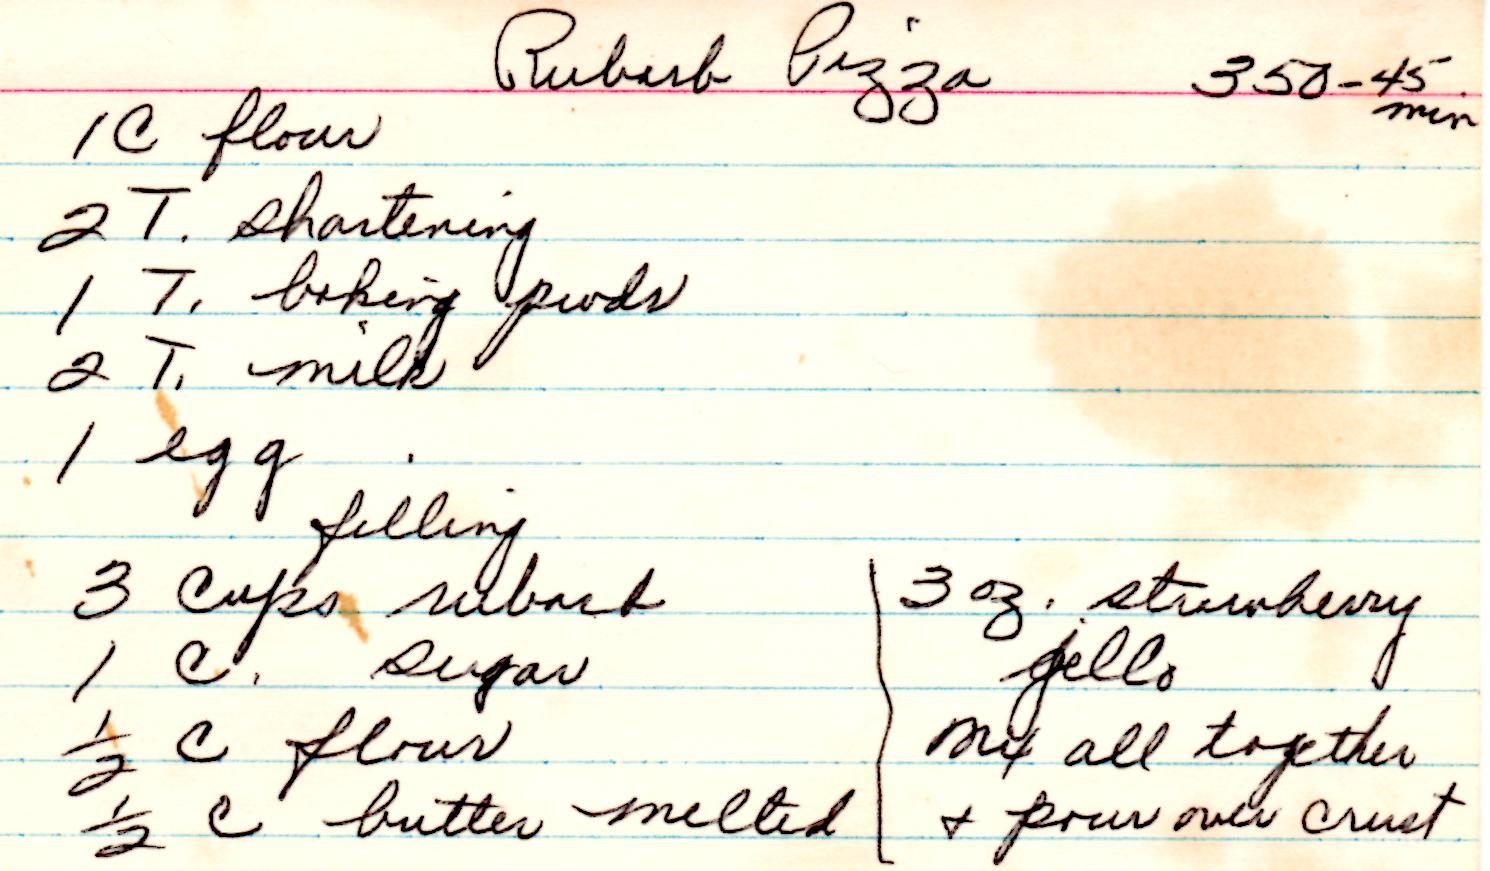 Rubarb Pizza 350-45 min
1 C flour
2 T. shortening
1 T. baking powdr
2 T. milk
1 egg
filling
3 cups rubarb
1 C. sugar
1/2 C flour
1/2 C butter melted
3 oz. strawberry
jello
mix all together
+ pour over crust